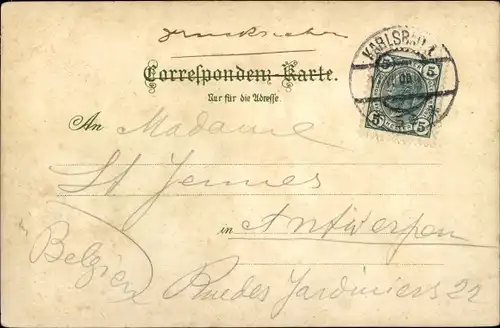 Drucksache
KARLSBAD 1
5 5
08
5 HELLER 5
Correspondenz-Karte.
Nur für die Adresse.
An Madame
St Jennes
in Antwerpen
in Belgien
Rue des Jardiniers 22